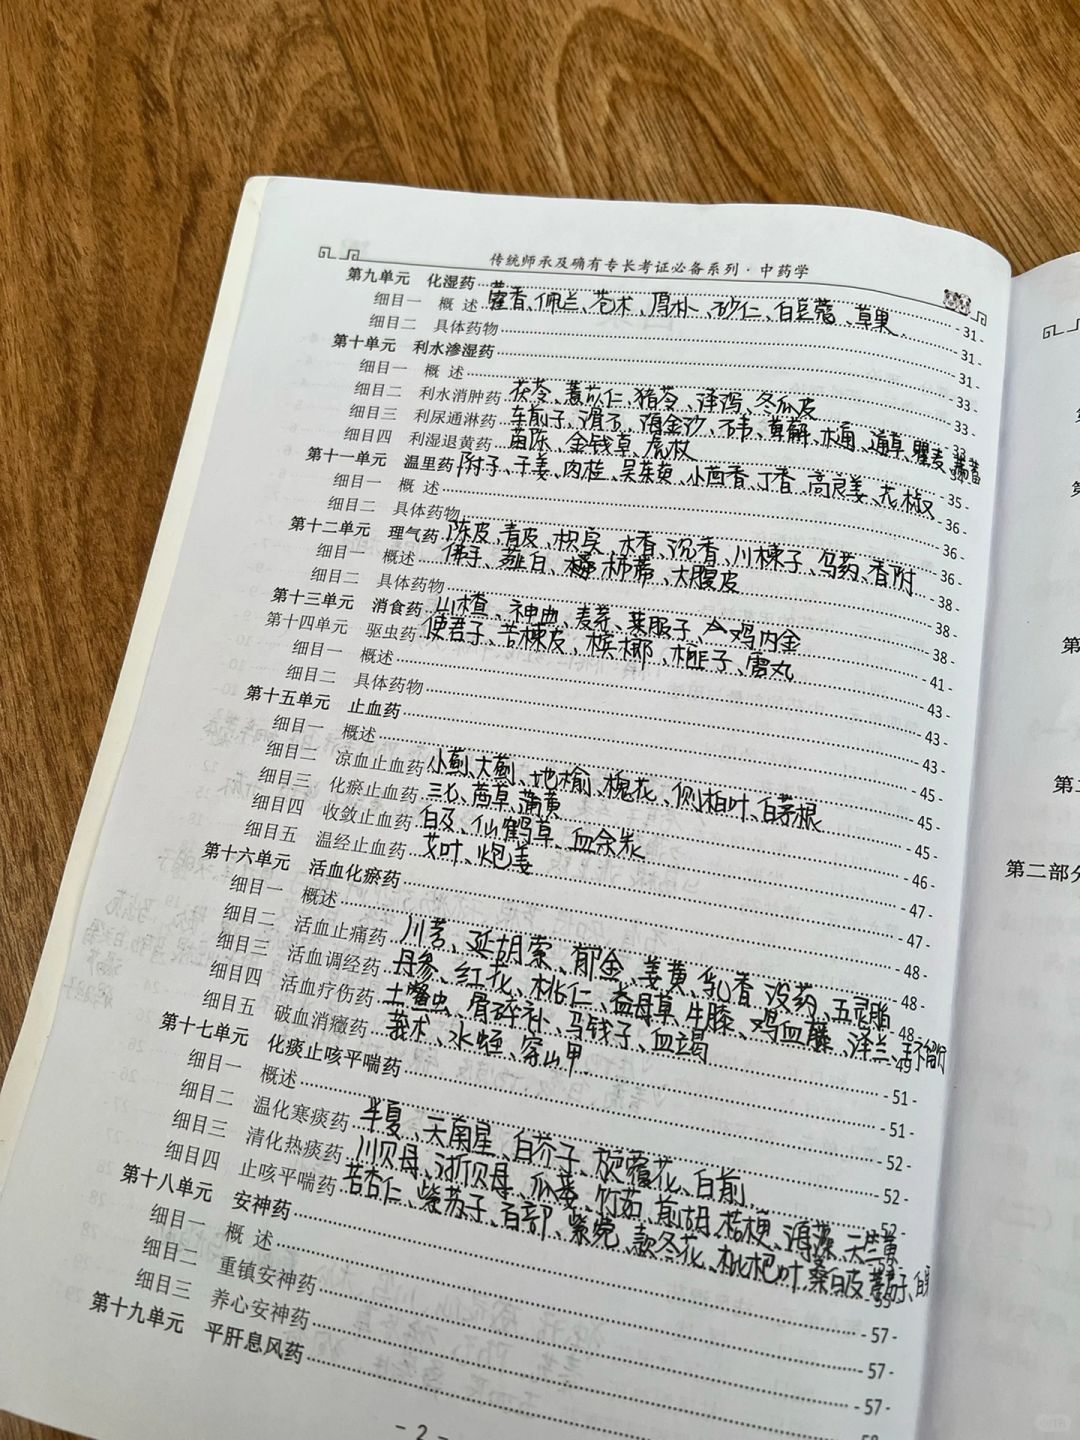 传统师承及确有专长考证必备系列·中药学
第九单元 化湿药 31
细目一 概述 藿香、佩兰、苍术、厚朴、砂仁、白豆蔻、草果 31
细目二 具体药物 31
第十单元 利水渗湿药 33
细目一 概述 33
细目二 利水消肿药 茯苓、薏苡仁、猪苓、泽泻、冬瓜皮 33
细目三 利尿通淋药 车前子、滑石、海金沙、石韦、萆薢、木通、通草、瞿麦、萹蓄
细目四 利湿退黄药 茵陈、金钱草、虎杖 35
第十一单元 温里药 附子、干姜、肉桂、吴茱萸、小茴香、丁香、高良姜、花椒 36
细目一 概述 36
细目二 具体药物 36
第十二单元 理气药 陈皮、青皮、枳实、木香、沉香、川楝子、乌药、香附 38
细目一 概述 佛手、薤白、柿蒂、大腹皮 38
细目二 具体药物 38
第十三单元 消食药 山楂、神曲、麦芽、莱服子、鸡内金 41
第十四单元 驱虫药 使君子、苦楝皮、槟榔、榧子、雷丸 43
细目一 概述 43
细目二 具体药物 43
第十五单元 止血药 45
细目一 概述 45
细目二 凉血止血药 小蓟、大蓟、地榆、槐花、侧柏叶、白茅根 45
细目三 化瘀止血药 三七、茜草、蒲黄 46
细目四 收敛止血药 白及、仙鹤草、血余炭 47
细目五 温经止血药 艾叶、炮姜 47
第十六单元 活血化瘀药 48
细目一 概述 48
细目二 活血止痛药 川芎、延胡索、郁金、姜黄、乳香、没药、五灵脂 48
细目三 活血调经药 丹参、红花、桃仁、益母草、牛膝、鸡血藤、泽兰、王不留行 49
细目四 活血疗伤药 土鳖虫、骨碎补、马钱子、血竭 51
细目五 破血消癥药 莪术、水蛭、穿山甲 51
第十七单元 化痰止咳平喘药 52
细目一 概述 52
细目二 温化寒痰药 半夏、天南星、白芥子、旋覆花、白前 52
细目三 清化热痰药 川贝母、浙贝母、瓜蒌、竹茹、前胡、桔梗、海藻、天竺黄
细目四 止咳平喘药 苦杏仁、紫苏子、百部、紫菀、款冬花、枇杷叶、桑白皮、葶苈子、白果 55
第十八单元 安神药 57
细目一 概述 57
细目二 重镇安神药 57
细目三 养心安神药
第十九单元 平肝息风药
- 2 -
第二部分